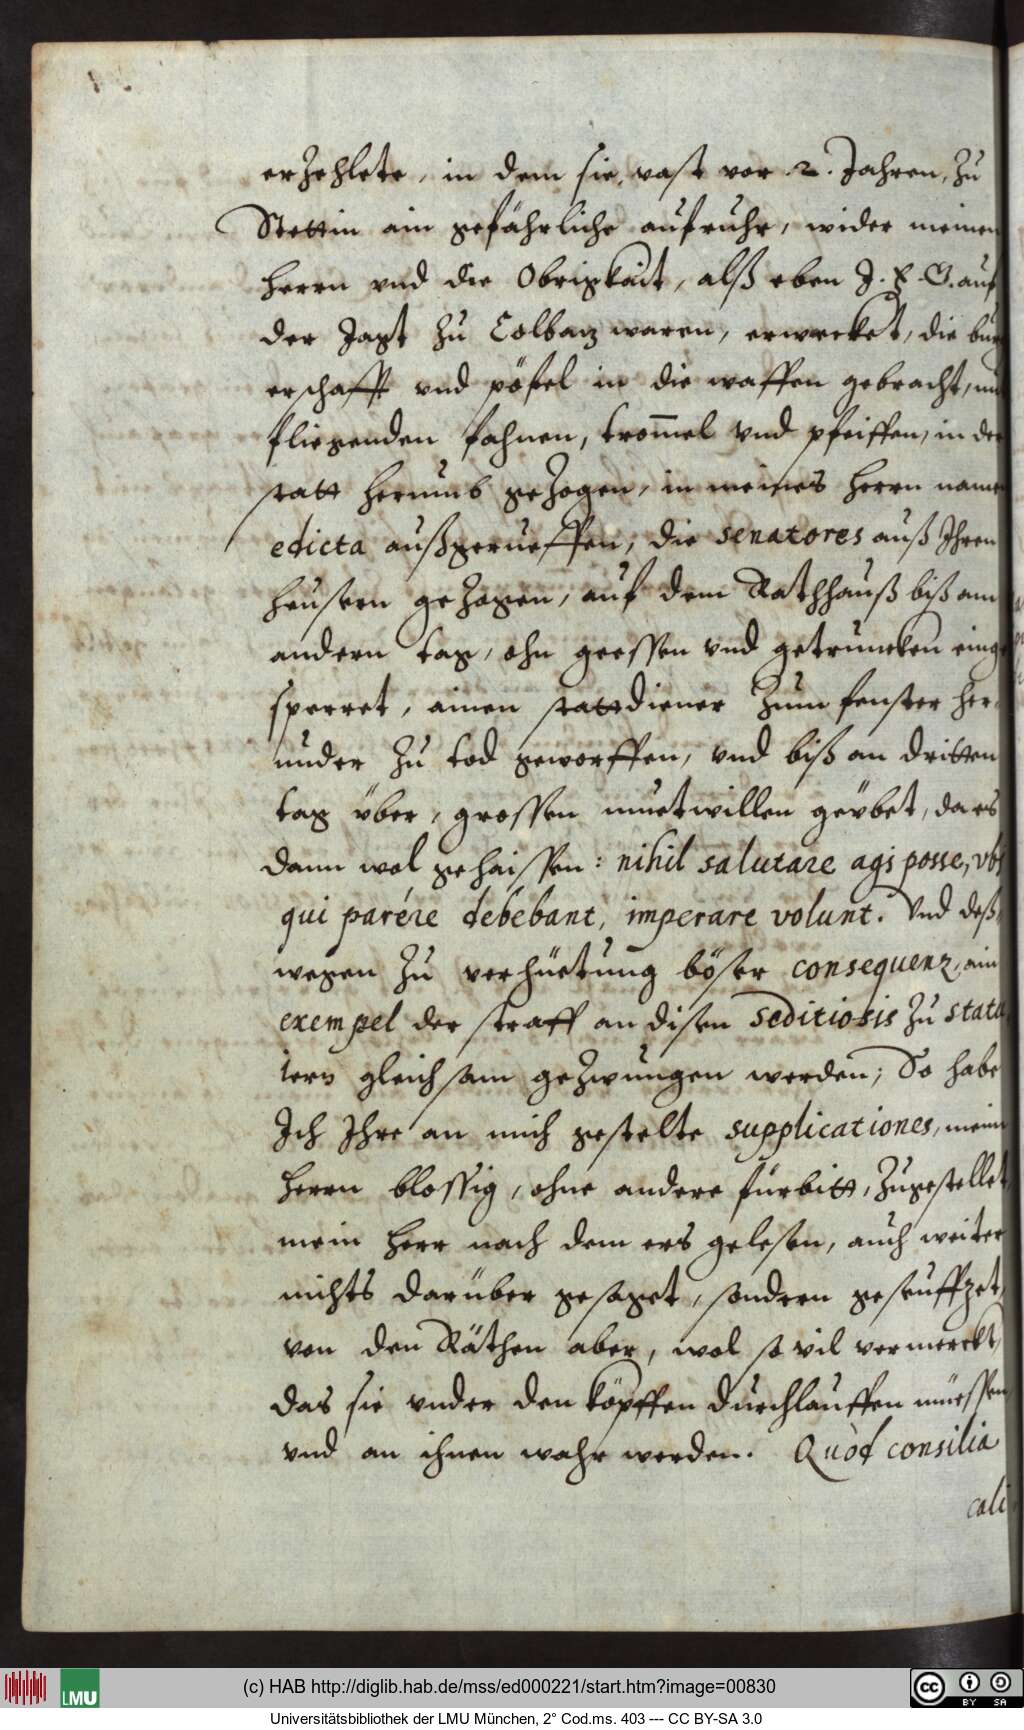 erzehlete, in dem sie, vast vor .2. Jahren, zu
Stettin ain gefährliche aufruhr, wider meinen
herrn vnd die Obrigkait, alß eben J. F. G. auf
der Jagt zu Colbaz waren, erwecket, die bur
erschafft vnd pöfel in die waffen gebracht, mit
fliegenden fahnen, trom̄el vnd pfeiffen, in der
statt herumb gezogen, in meines herrn namen
edicta außgerueffen, die senatores auß Ihren
heusern gezogen, auf dem Rathhauß biß am
andern tag, ohn geessen vnd getruncken einge
sperret, ainen stattdiener zum fenster her-
under zu tod geworffen, vnd biß an dritten
tag über, grossen muetwillen geübet, da es
dann wol gehaissen: nihil salutare agi posse, vbi
qui parére debebant, imperare volunt. Vnd deß
wegen zu verhüetung böser consequenz, ain
exempel der straff an disen seditiosis zu statu
iern gleichsam gezwungen werden; So habe
Ich Ihre an mich gestelte supplicationes, meinem
herrn blossig, ohne andere fürbitt, zugestellet
mein herr nach dem ers gelesen, auch weiter
nichts darüber gesaget, sondern geseuffzet,
von den Räthen aber, wol so vil vermerckt,
das sie vnder den köpffen durchlauffen müessen
vnd an ihnen wahr werden. Quòd consilia
cali
(c) HAB http://diglib.hab.de/mss/ed000221/start.htm?image=00830
LMU
BY SA
Universitätsbibliothek der LMU München, 2° Cod.ms. 403 --- CC BY-SA 3.0